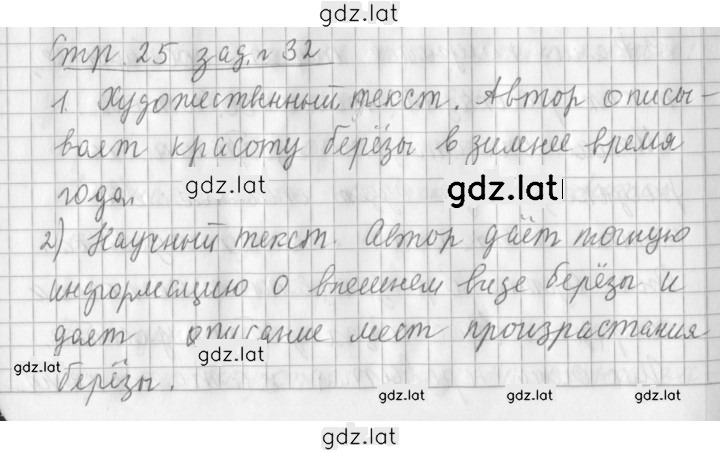 gdz.lat
Стр. 25 зад. 32
1. Художественный текст. Автор описы-
вает красоту берёзы в зимнее время
года.
gdz.lat
gdz.lat
2) Научный текст. Автор даёт точную
информацию о внешнем виде берёзы и
дает описание мест произрастания
gdz.lat
gdz.lat
берёзы.
gdz.lat
gdz.lat
gdz.lat
gdz.lat